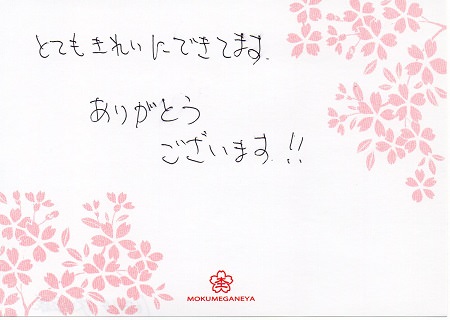 とてもきれいにできてます.
ありがとう
ございます!!
MOKUMEGANEYA